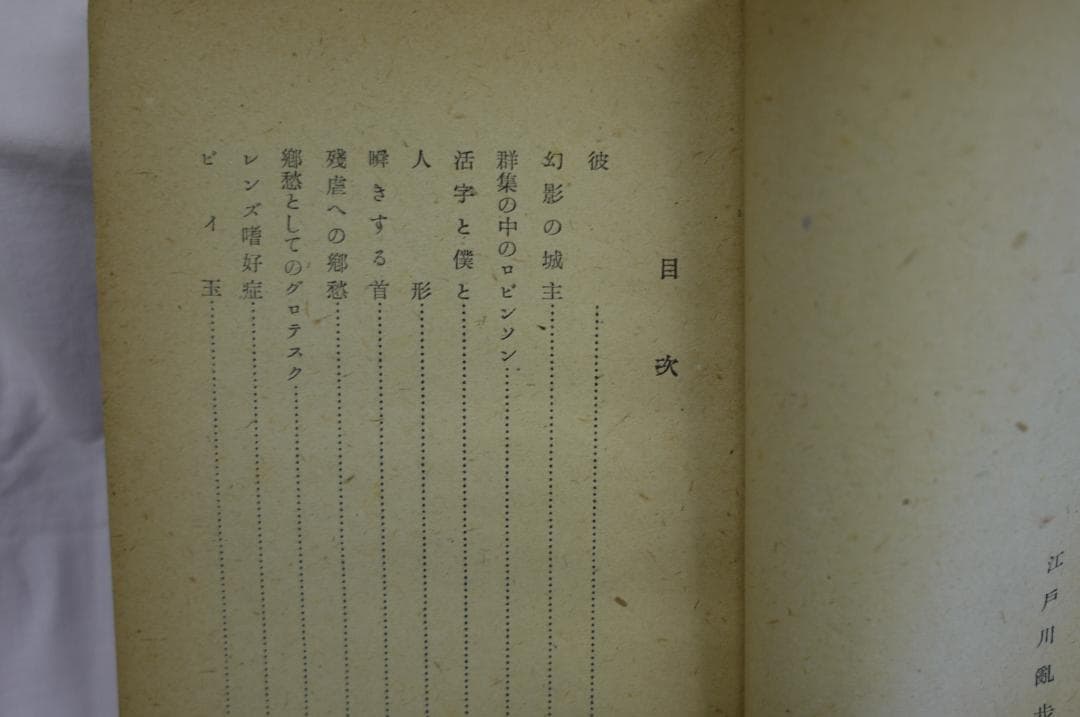 江戸川亂歩
目次
彼
幻影の城主
群集の中のロビンソン
活字と僕と
人形
瞬きする首
殘虐への鄕愁
鄕愁としてのグロテスク
レンズ嗜好症
ビイ玉